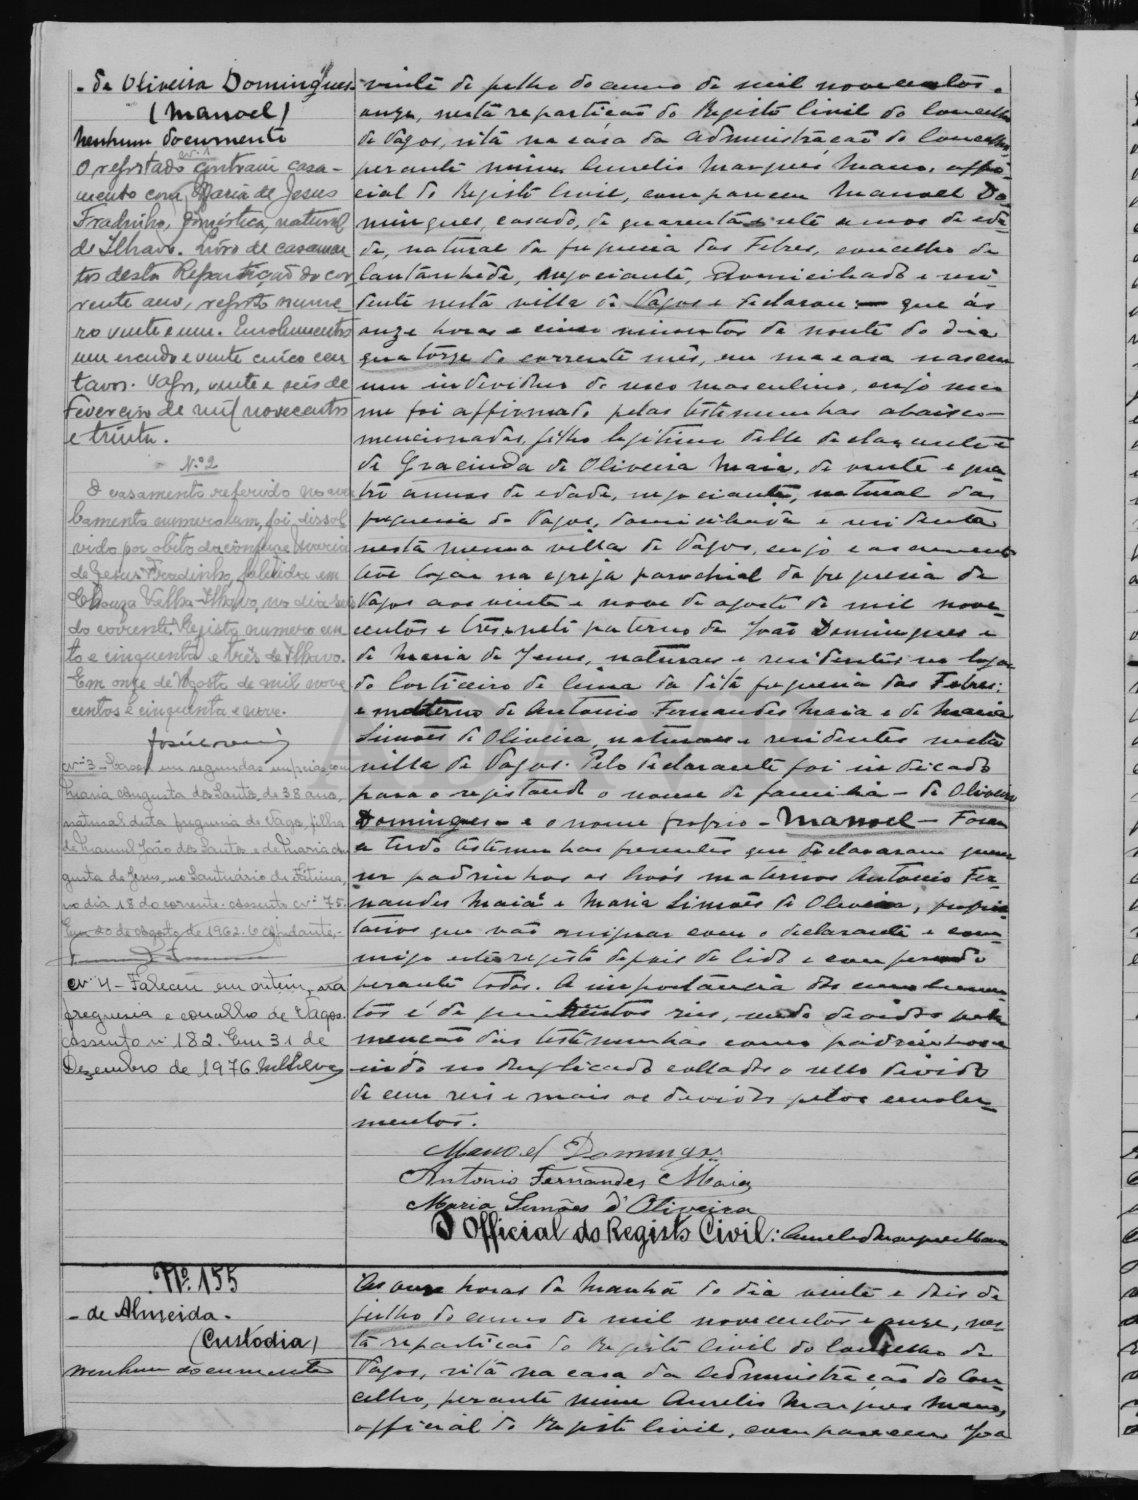 - de Oliveira Domingues -
(Manoel)
Nenhum documento
Nº 1
O registado contraíu casa-
mento com Maria de Jesus
Fradinho, doméstica, natural
de Ilhavo. Livro de casamen-
tos desta Repartição do cor-
rente ano, registo nume-
ro vinte e um. Emolumentos
um escudo e vinte cinco cen
tavos. Vagos, vinte e seis de
Fevereiro de mil novecentos
e trinta.
Nº 2
O casamento referido no aver
bamento numero um, foi dissol
vido por obito da cônjuge Maria
de Jesus Fradinho, falecida em
Chouza Velha - Ilhavo, no dia seis
do corrente. Registo numero cen
to e cinquenta e três de Ilhavo.
Em onze de Agosto de mil nove
centos e cinquenta e nove.
Nº 3 - Casou em segundas nupcias com
Maria Augusta dos Santos, de 38 anos,
natural desta freguesia de Vagos, filha
de Manuel João dos Santos e de Maria Au
gusta de Jesus, no Santuário de Fátima,
no dia 18 do corrente. Assento nº 75.
Em 20 de Agosto de 1962. O Ajudante,
Nº 4 - Faleceu em ontem, na
freguesia e concelho de Vagos.
Assento nº 182. Em 31 de
Dezembro de 1976.
vinte de julho do anno de mil novecentos e
onze, nesta repartição do Registo Civil do Concelho
de Vagos, sita na casa da Administração do Concelho,
perante mim Aurelio Marques Mano, offi-
cial do Registo Civil, compareceu Manoel Do-
mingues, casado, de quarenta e sete annos de eda-
de, natural da freguesia das Febres, concelho de
Cantanhede, negociante, domiciliado e resi-
dente nesta villa de Vagos e declarou: - que ás
onze horas e cinco minutos da noute do dia
quatorze do corrente mês, em sua casa nasceu
um individuo do sexo masculino, cujo sexo
me foi affirmado pelas testemunhas abaixo
mencionadas, filho legitimo delle declarante e
de Gracinda de Oliveira Maia, de vinte e qua-
tro annos de edade, negociante, natural da
freguesia de Vagos, domiciliada e residente
nesta mesma villa de Vagos, cujo casamento
teve logar na egreja parochial da freguesia de
Vagos aos vinte e nove de agosto de mil nove-
centos e três, neto paterno de João Domingues e
de Maria de Jesus, naturaes e residentes no logar
do Corticeiro de Cima da dita freguesia das Febres;
e materno de Antonio Fernandes Maia e de Maria
Simões de Oliveira, naturaes e residentes nesta
villa de Vagos. Pelo declarante foi indicado
para o registando o nome de familia - de Oliveira
Domingues - e o nome proprio - Manoel - Foram
a tudo testemunhas presentes que declararam querer
ser padrinhos os avós maternos Antonio Fer-
nandes Maia e Maria Simões de Oliveira, proprie
tarios que vão assignar com o declarante e com-
migo este registo depois de lido e comparado
perante todos. A importancia dos emolumen-
tos é de quinhentos reis,
menção das testemunhas como padrinhos e
indo no duplicado collado o sello devido
de cem reis e mais os devidos pelos emolu-
mentos.
Manoel Domingos
Antonio Fernandes Maia
Maria Simões d'Oliveira
O Official do Registo Civil: Aurelio Marques Mano
Nº 155
- de Almeida -
(Custodia)
Nenhum documento
Ás onze horas da manhã do dia vinte e dois de
julho do anno de mil novecentos e onze, nes-
ta repartição do Registo Civil do Concelho de
Vagos, sita na casa da Administração do Con-
celho, perante mim Aurelio Marques Mano,
official do Registo Civil, compareceu Joa